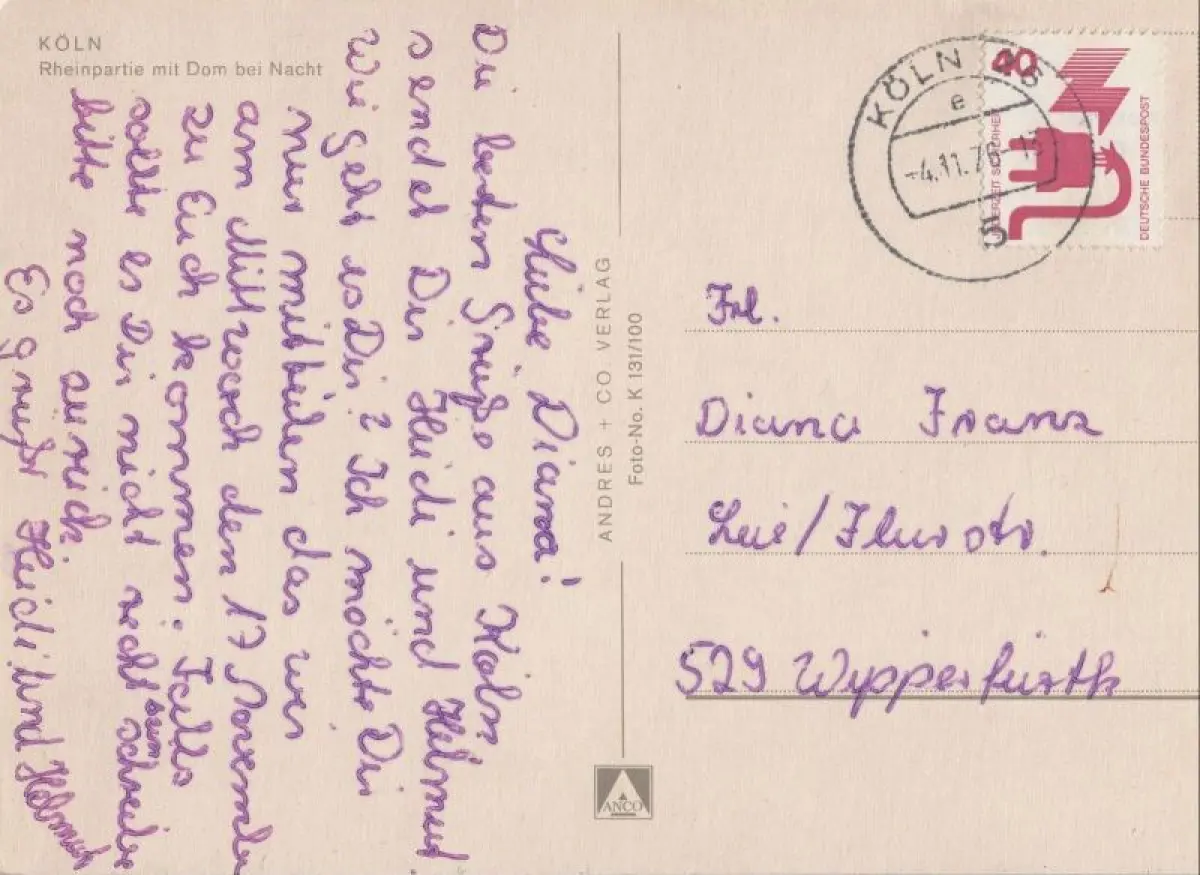 KÖLN
Rheinpartie mit Dom bei Nacht
Liebe Diana!
Die besten Grüße aus Köln
sendet Dir Heidi und Helmut
Wie geht es Dir? Ich möchte Dir
nur mitteilen das wir
am Mittwoch den 17 November
zu Euch kommen. Falls
sollte es Dir nicht recht sein schreibe
bitte noch zurück.
Es grüßt Heidi und Helmut
ANDRES + CO VERLAG
Foto-No. K 131/100
ANCO
KÖLN
e
-4.11.7
40
JEDERZEIT SICHERHEIT
DEUTSCHE BUNDESPOST
Frl.
Diana Franz
Leie/Flurstr.
529 Wipperfürth